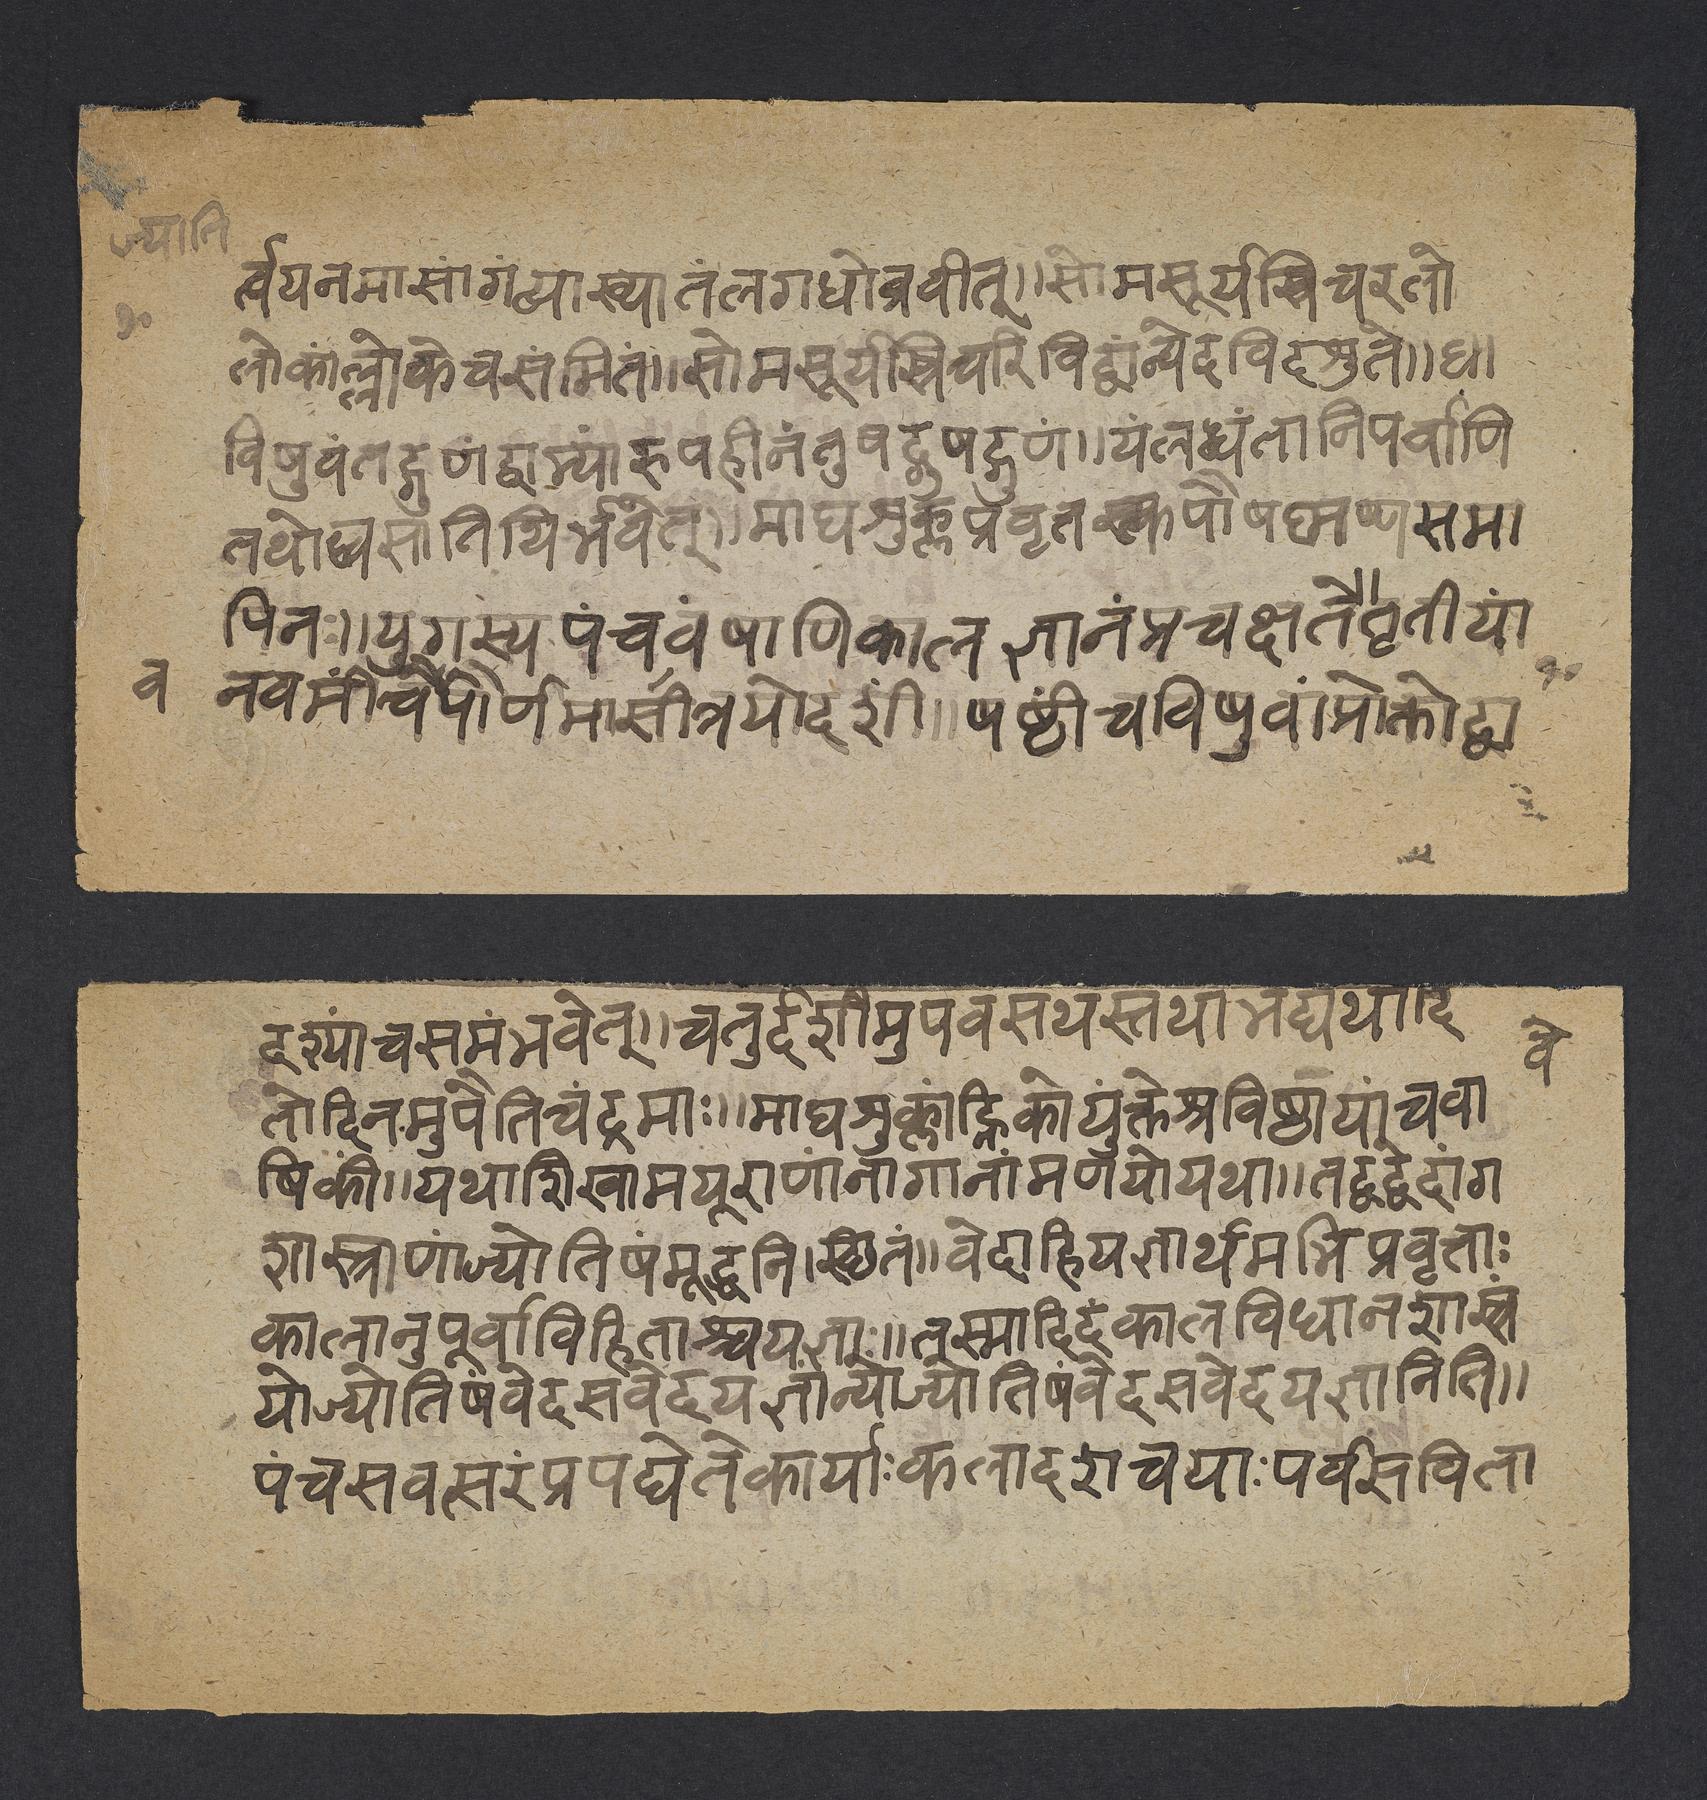 ज्योति
र्त्वयनमासांगंव्याख्यातंलगधोब्रवीत्।।सोमसूर्यस्त्रिचरतो
१०
लोकांल्लोकेचसंमितं।।सोमसूर्यस्त्रिचरिविद्वांन्वेदविदश्नुते।।घ।।
विषुवंतद्गुणंद्वाभ्यांरुपहीनंतुषद्गुषद्गुणं।।यंलब्धंतानिपर्वाणि
तथोध्वसातिथिर्भवेत्।।माघशुक्लप्रवृतस्कपौषघ्मष्णसमा
पिनः।।युगस्यपंचवंषाणिकालज्ञानंप्रचक्षतेतृतीयां
१०
व
नवमींचैपौर्णमासींत्रयोदशीं।।षष्ठींचविषुवांप्रोक्तोद्वा
दश्यांचसमंभवेत्।।चतुर्दशीमुपवसथस्तथाभद्यथादि
वे
तोदिनमुपैतिचंद्रमाः।।माघशुक्लांह्निकोयुंक्तेश्रविष्ठायांचवा
र्षिकीं।।यथाशिखामयूराणांनागानांमणयोयथा।।तद्वद्वेदांग
शास्त्राणांज्योतिषंमूर्द्धनिस्थितं।।वेदाहियज्ञार्थमभिप्रवृत्ताः
कालानुपूर्वाविहिताश्चयज्ञाः।।तस्मादिदंकालविधानशास्त्रं
योज्योतिषंवेदसवेदयज्ञांन्योज्योतिषंवेदसवेदयज्ञानिति।।
पंचसवत्सरंप्रपद्येतेकार्याःकलादशचयाःपर्वसविता